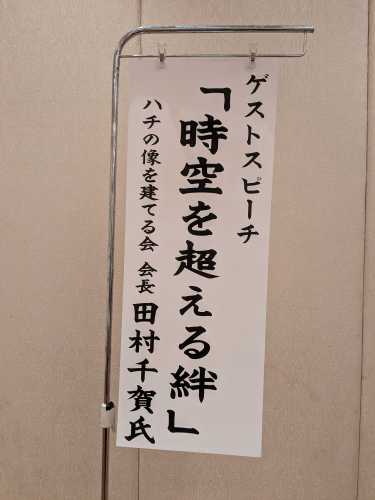 ゲストスピーチ
「時空を超える絆」
ハチの像を建てる会 会長 田村千賀氏